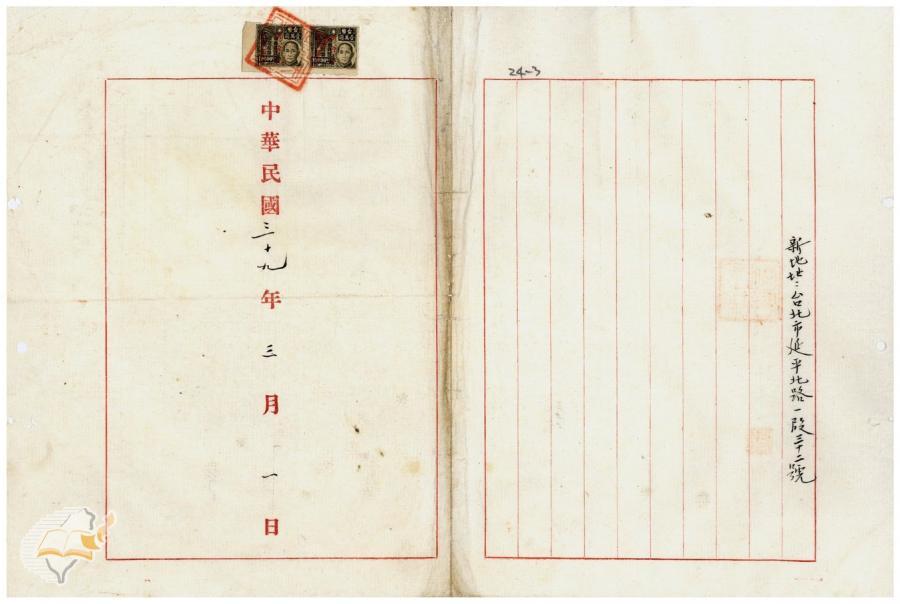 24-3
新地址：台北市延平北路一段三十二號
中華民國三十九年三月一日